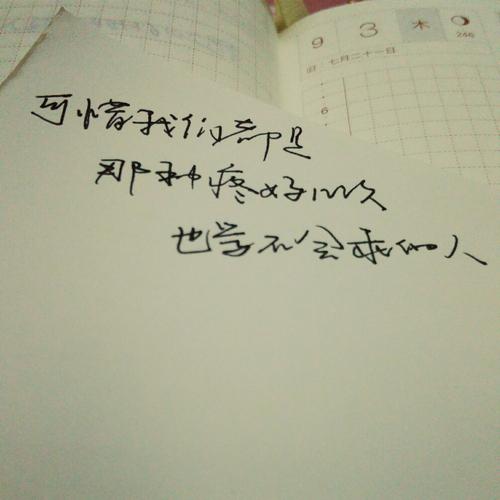 9 3 木
246
旧 七月二十一日
6
可惜我们都是
那种疼好次
也学不会人